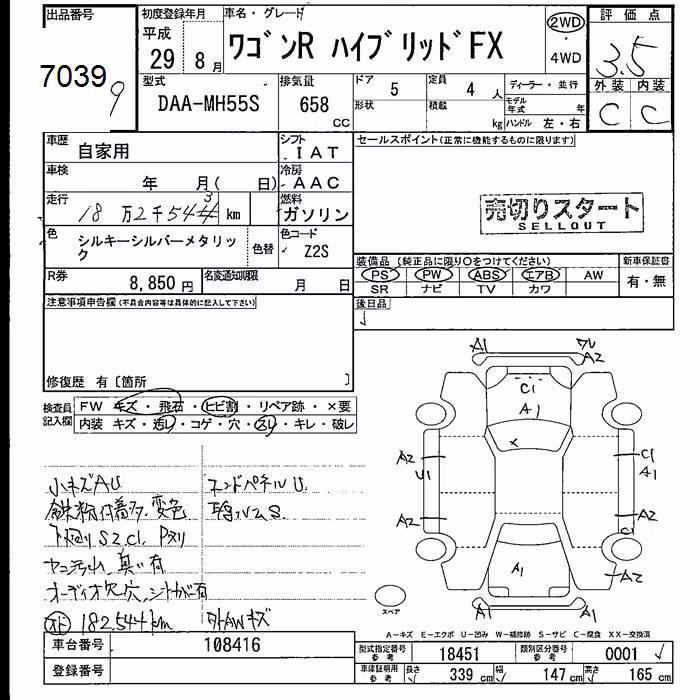 出品番号
70399
初度登録年月
平成
29年8月
車名・グレード
ワゴンR ハイブリッドFX
2WD
・
4WD
評価点
3.5
外装 内装
C C
型式
DAA-MH55S
排気量
658
CC
ドア 5
形状
定員 4 人
積載 kg
ディーラー・並行
モデル年式 年
ハンドル 左・右
車歴
自家用
シフト
IAT
車検
年 月( 日)
冷房
AAC
走行
18万2千544km
燃料
ガソリン
色
シルキーシルバーメタリック
色替
色コード
Z2S
R券
8,850円
名変通知期限
月 日
セールスポイント(正常に機能するものに限ります)
売切りスタート
SELLOUT
装備品(純正品に限り○をつけてください)
PS PW ABS エアB AW
SR ナビ TV カワ
新車保証書
有・無
注意事項申告欄(不具合内容等は具体的に記入して下さい)
後日品
修復歴 有〔箇所 〕
検査員記入欄
FW キズ・飛石・ヒビ割・リペア跡・×要
内装 キズ・汚レ・コゲ・穴・スレ・キレ・破レ
小キズAU
鉄粉付着多.変色
下廻りS2.C1.Pスリ
ヤニ汚れ、臭い有
オーディオ欠.穴
182.544km
外AWキズ
A1
A2
C1
A1
×
A2
U1
A2
C1
A1
A2
C1
A2
A1
A1
A1
スペア
A-キズ E-エクボ U-凹み W-補修跡 S-サビ C-腐食 XX-交換済
車台番号
108416
登録番号
型式指定番号
参考
18451
類別区分番号
参考
0001
車庫証明用
参考
長さ 339 cm
幅 147 cm
高さ 165 cm